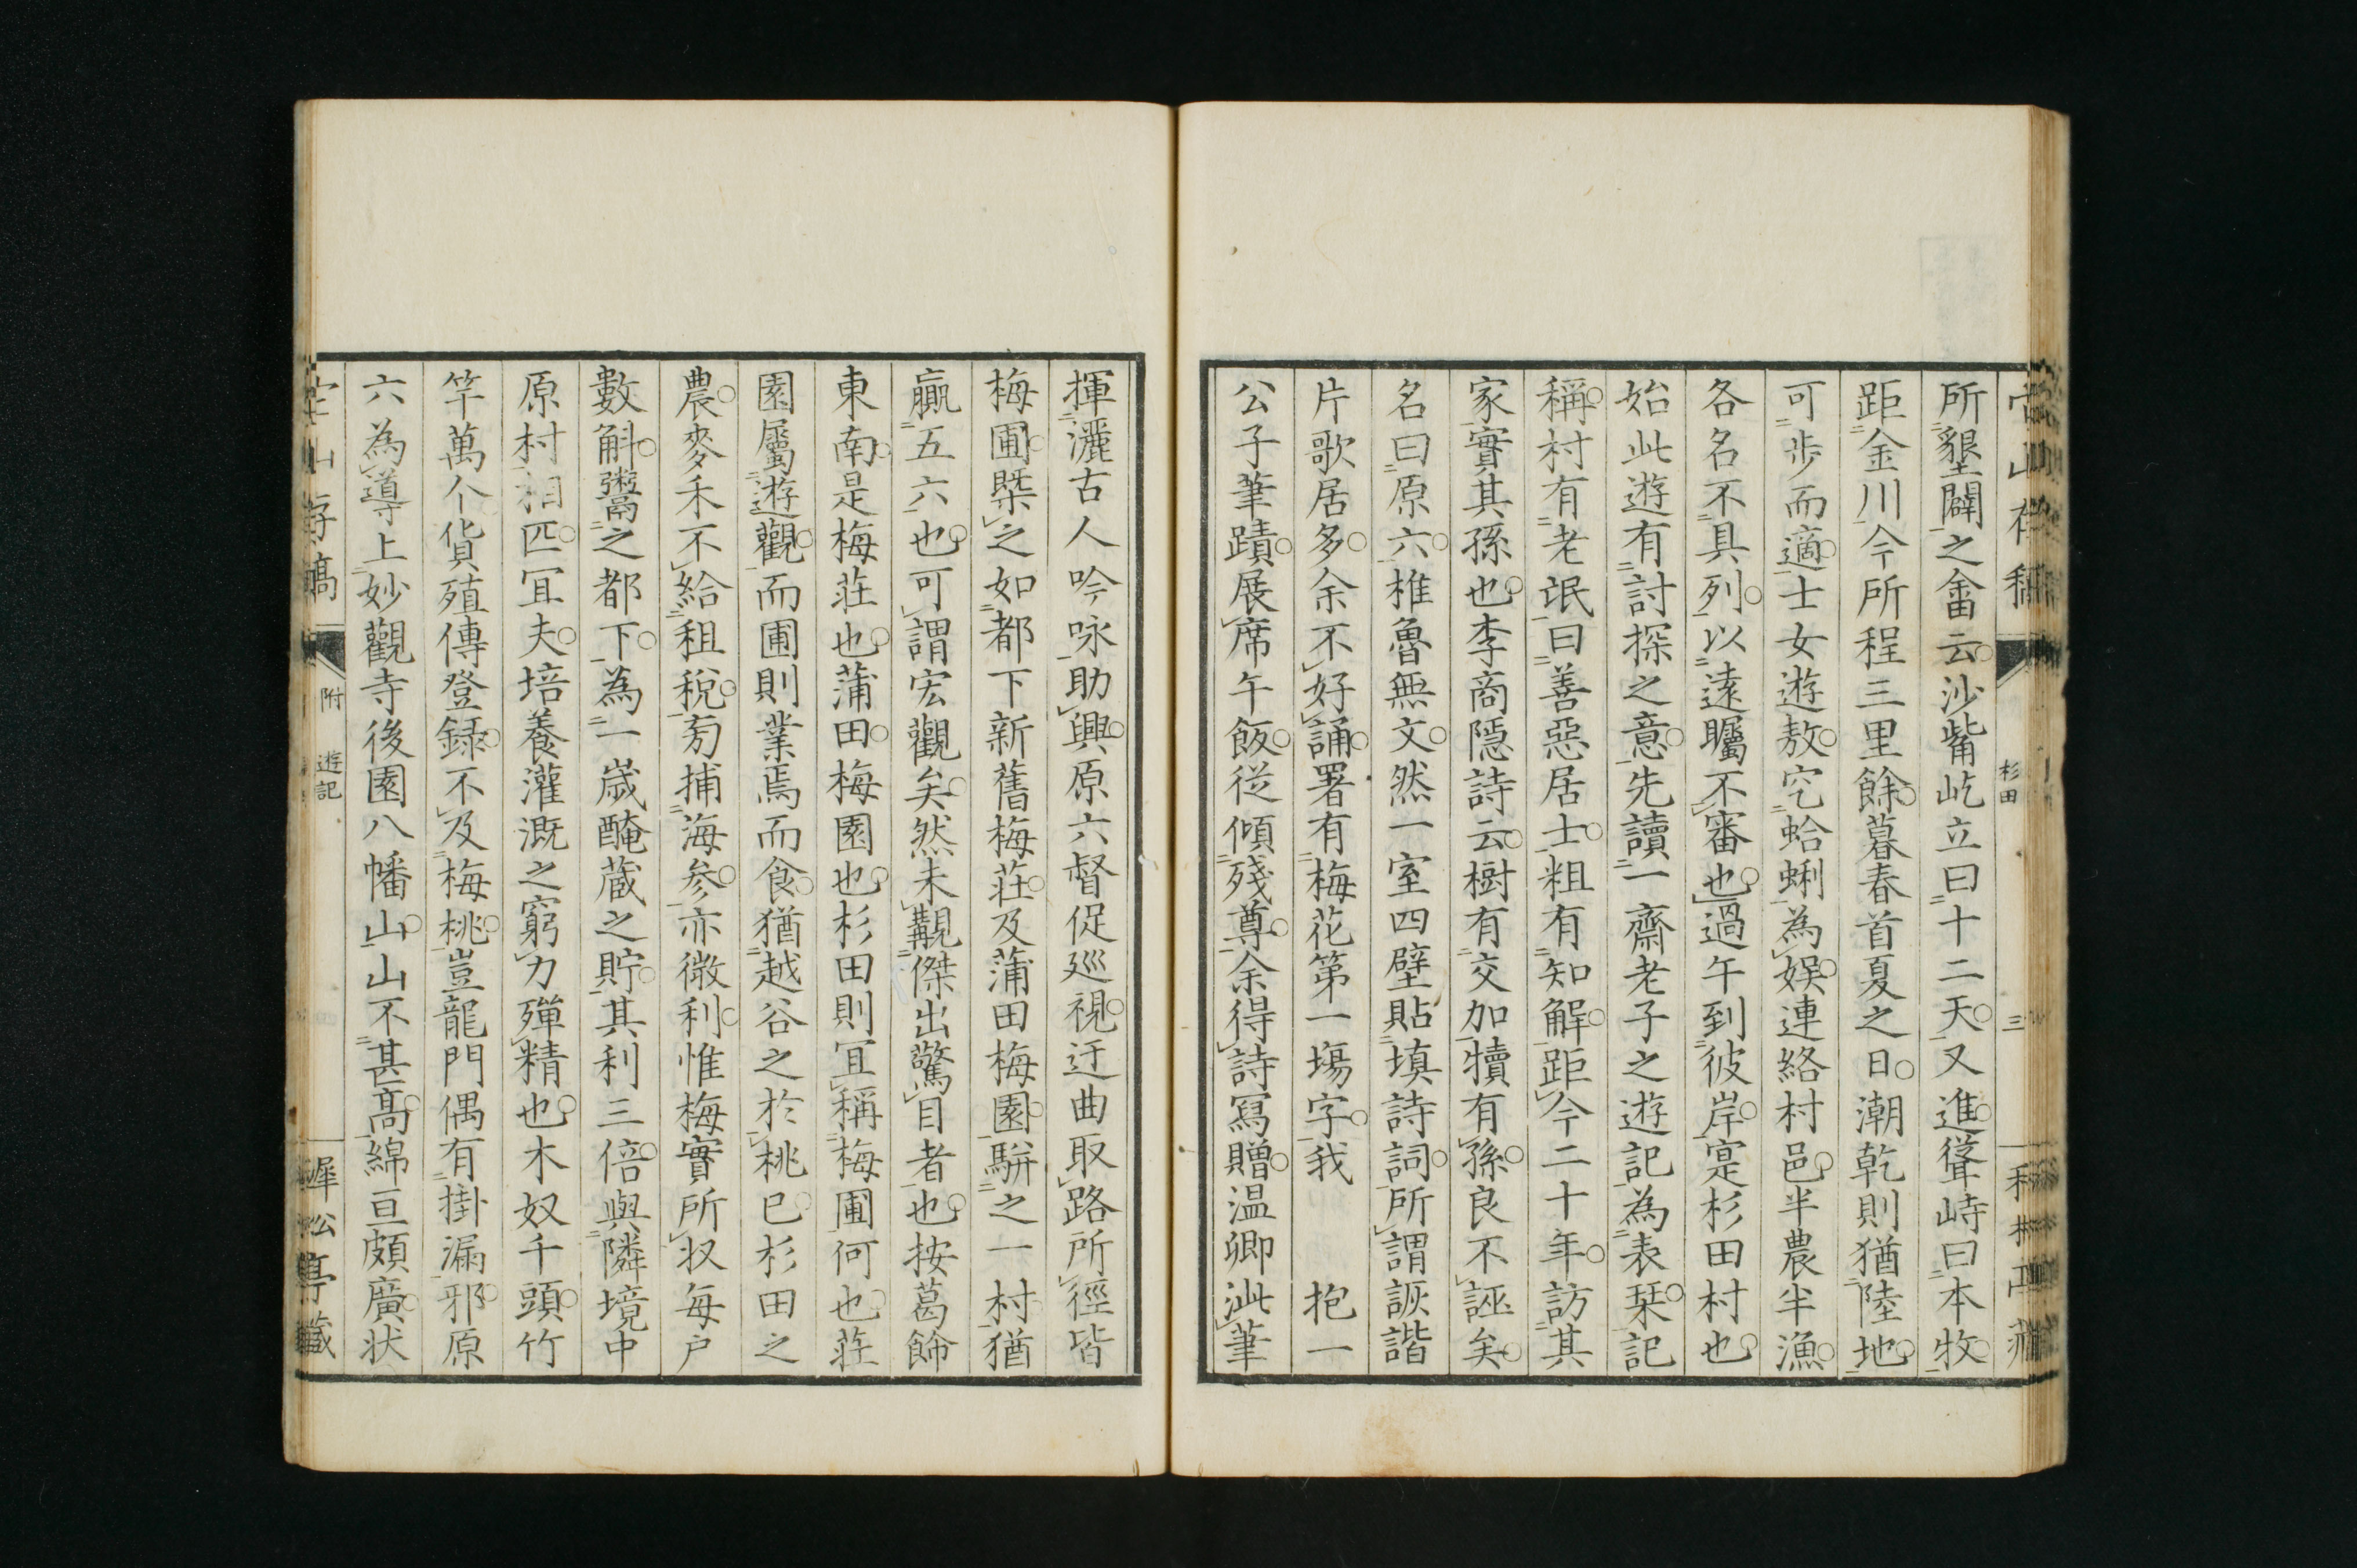 所墾闢之畬云沙觜屹立曰十二天又進聳峙曰本牧
距金川今所程三里餘暮春首夏之日潮乾則猶陸地
可歩而適士女遊敖穵蛤蜊為娯連絡村邑半農半漁
各名不具列以遠矚不審也過午到彼岸寔杉田村也
始此遊有討探之意先讀一齋老子之遊記為表栞記
稱村有老氓曰善惡居士粗有知解距今二十年訪其
家實其孫也李商隱詩云樹有交加犢有孫良不誣矣
名曰原六椎魯無文然一室四壁貼填詩詞所謂詼諧
片歌居多余不好誦署有梅花第一塲字我 抱一
公子筆蹟展席午飯從傾殘尊余得詩冩贈温卿泚筆
杉田
三
揮灑古人吟咏助興原六督促廵視迂曲取路所徑皆
梅圃槩之如都下新舊梅莊及蒲田梅園駢之一村猶
贏五六也可謂宏觀矣然未覯傑出驚目者也按葛飾
東南是梅莊也蒲田梅園也杉田則冝稱梅圃何也莊
園屬遊觀而圃則業焉而食猶越谷之於桃已杉田之
農麥禾不給租税旁捕海参亦微利惟梅實所収毎户
數斛鬻之都下為一歳醃蔵之貯其利三倍與隣境中
原村相匹冝夫培養灌漑之窮力殫精也木奴千頭竹
竿萬个貨殖傳登録不及梅桃豈龍門偶有掛漏邪原
六為導上妙觀寺後園八幡山山不甚髙綿亘頗廣状
附 遊記